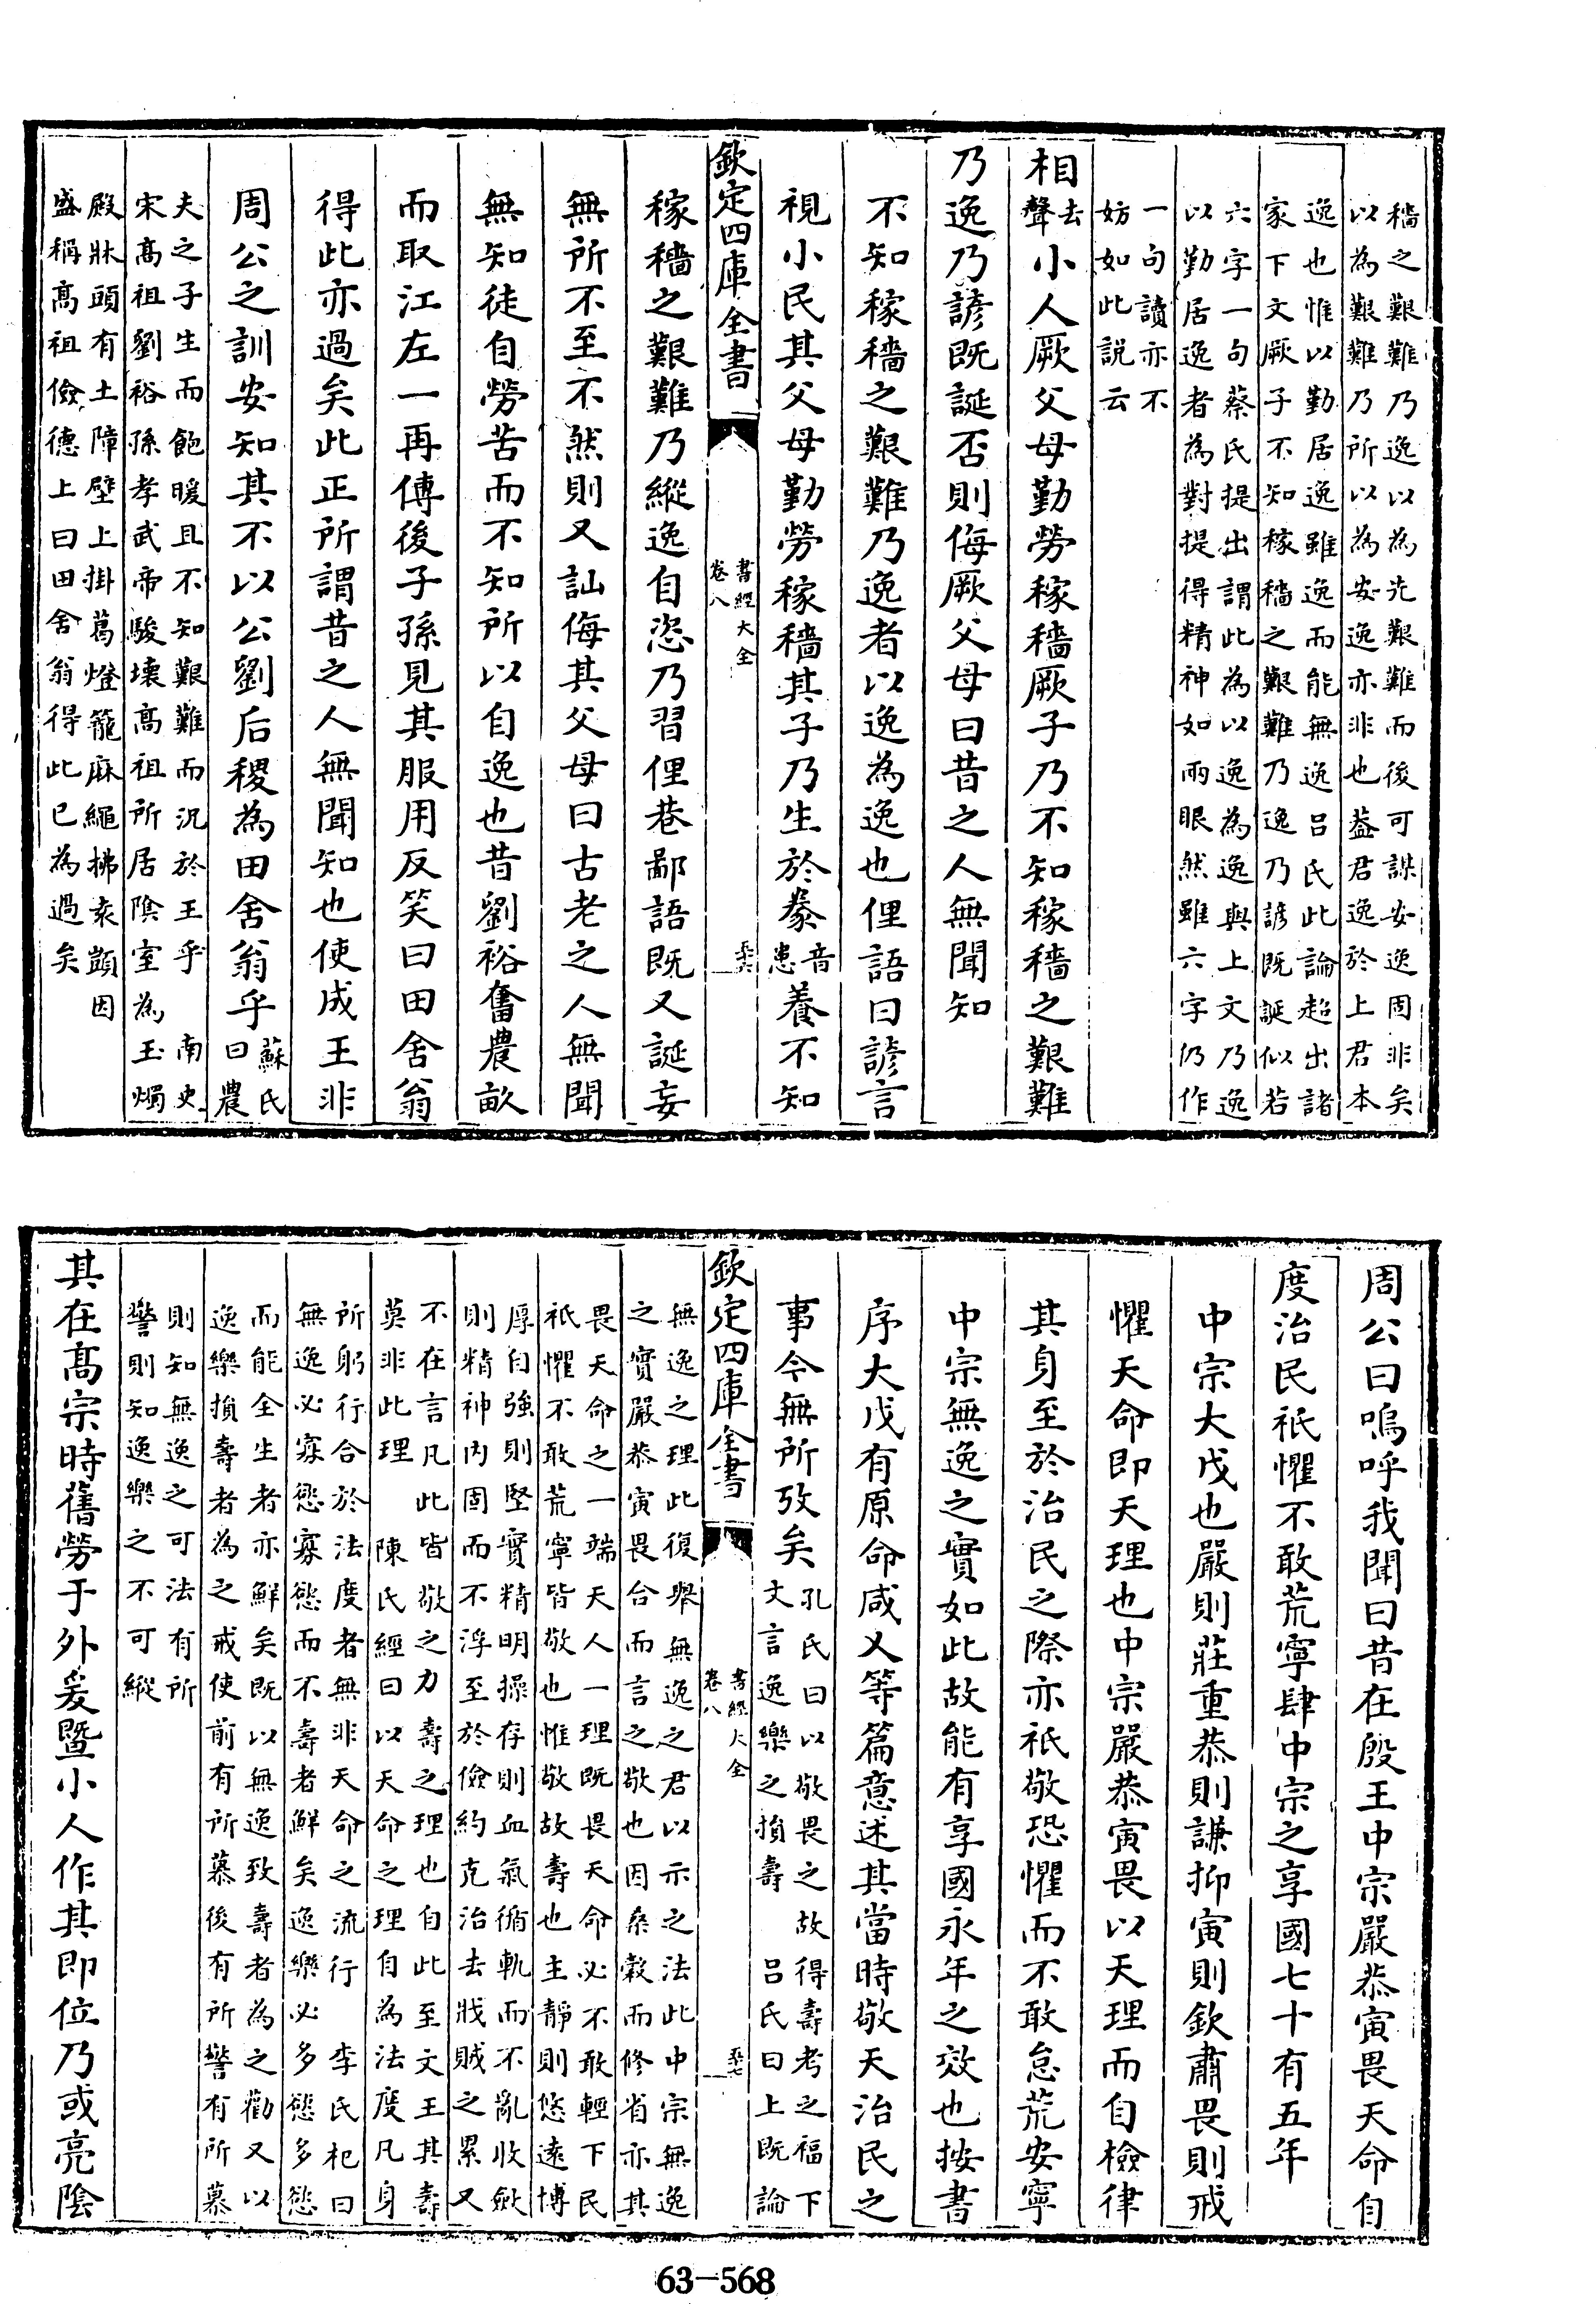 穡之艱難乃逸以為先艱難而後可謀安逸固非矣
以為艱難乃所以為安逸亦非也葢君逸於上君本
逸也惟以勤居逸雖逸而能無逸吕氏此論超出諸
家下文厥子不知稼穡之艱難乃逸乃諺既誕似若
六字一句蔡氏提出謂此為以逸為逸與上文乃逸
以勤居逸者為對提得精神如兩眼然雖六字仍作
一句讀亦不
妨如此説云
相去聲小人厥父母勤勞稼穡厥子乃不知稼穡之艱難
乃逸乃諺既誕否則侮厥父母曰昔之人無聞知
不知稼穡之艱難乃逸者以逸為逸也俚語曰諺言
視小民其父母勤勞稼穡其子乃生於豢音患養不知
欽定四庫全書
書經大全
卷八
五十六
稼穡之艱難乃縱逸自恣乃習俚巷鄙語既又誕妄
無所不至不然則又訕侮其父母曰古老之人無聞
無知徒自勞苦而不知所以自逸也昔劉裕奮農畝
而取江左一再傳後子孫見其服用反笑曰田舍翁
得此亦過矣此正所謂昔之人無聞知也使成王非
周公之訓安知其不以公劉后稷為田舍翁乎蘇氏曰農
夫之子生而飽暖且不知艱難而況於王乎 南史
宋高祖劉裕孫孝武帝駿壊高祖所居隂室為玉燭
殿牀頭有土障壁上掛葛燈籠麻繩拂袁顗因
盛稱高祖儉德上曰田舍翁得此已為過矣
周公曰嗚呼我聞曰昔在殷王中宗嚴恭寅畏天命自
度治民祇懼不敢荒寧肆中宗之享國七十有五年
中宗大戊也嚴則莊重恭則謙抑寅則欽肅畏則戒
懼天命即天理也中宗嚴恭寅畏以天理而自檢律
其身至於治民之際亦祇敬恐懼而不敢怠荒安寧
中宗無逸之實如此故能有享國永年之效也按書
序大戊有原命咸乂等篇意述其當時敬天治民之
事今無所攷矣孔氏曰以敬畏之故得壽考之福下
文言逸樂之損壽 吕氏曰上既論
欽定四庫全書
書經大全
卷八
五十七
無逸之理此復舉無逸之君以示之法此中宗無逸
之實嚴恭寅畏合而言之敬也因桑穀而修省亦其
畏天命之一端天人一理既畏天命必不敢輕下民
祇懼不敢荒寧皆敬也惟敬故壽也主靜則悠遠博
厚自強則堅實精明操存則血氣循軌而不亂收斂
則精神内固而不浮至於儉約克治去戕賊之累又
不在言凡此皆敬之力壽之理也自此至文王其壽
莫非此理 陳氏經曰以天命之理自為法度凡身
所躬行合於法度者無非天命之流行 李氏杞曰
無逸必寡慾寡慾而不壽者鮮矣逸樂必多慾多慾
而能全生者亦鮮矣既以無逸致壽者為之勸又以
逸樂損壽者為之戒使前有所慕後有所警有所慕
則知無逸之可法有所
警則知逸樂之不可縱
其在高宗時舊勞于外爰暨小人作其即位乃或亮隂
63-568